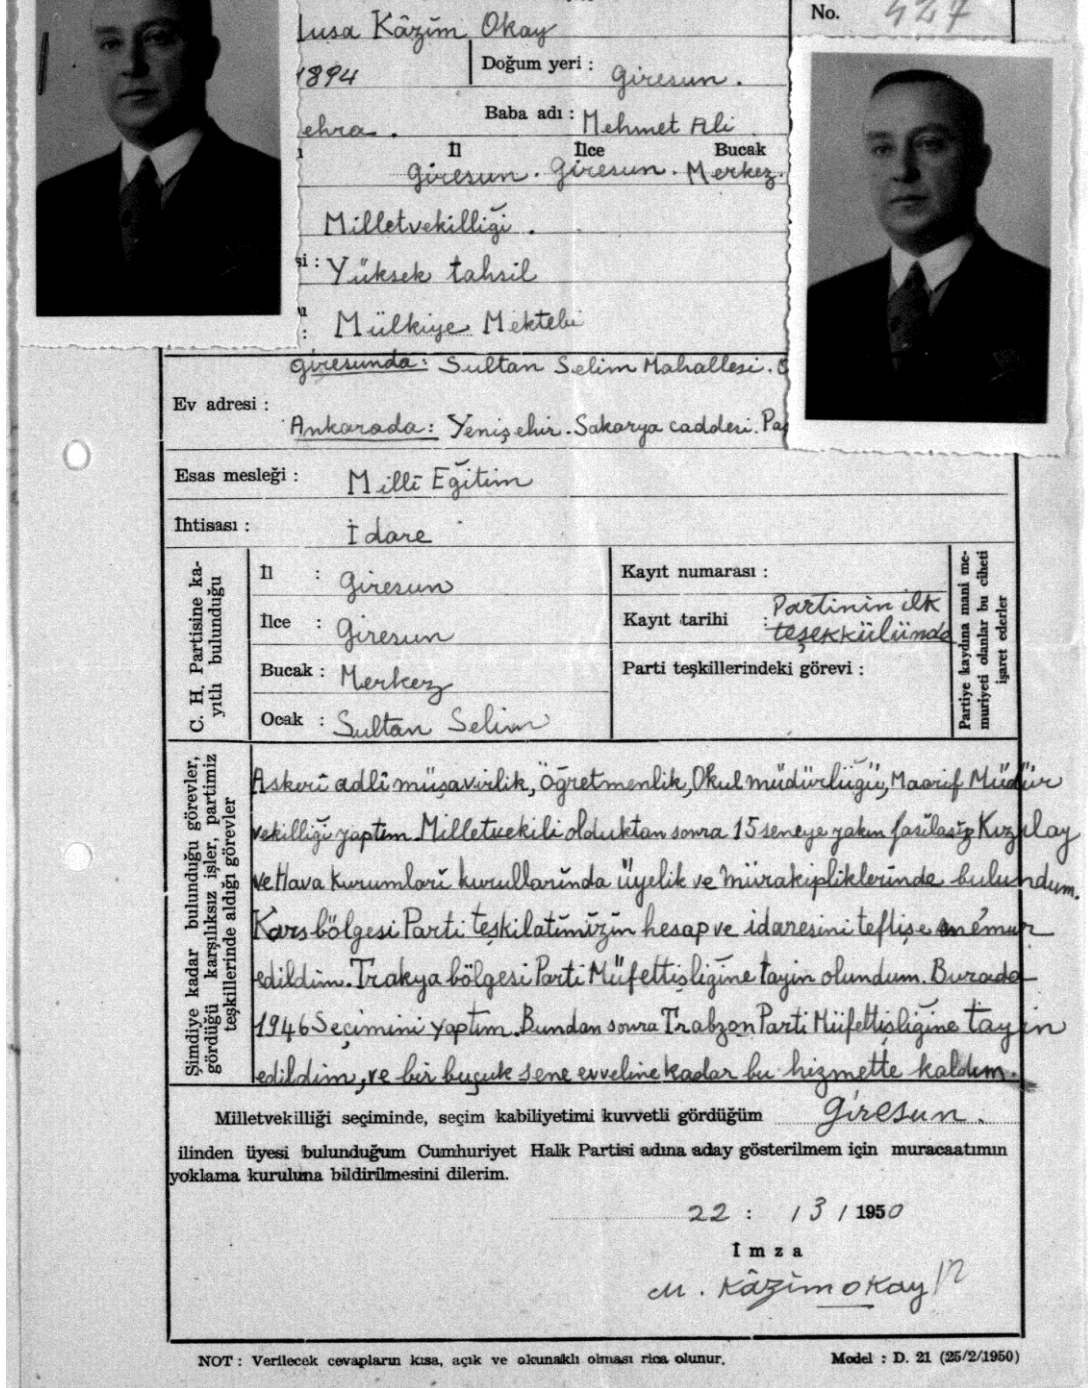 Kâzım Okay
No. 427
1894 Doğum yeri : Giresun.
Baba adı : Mehmet Ali
ehra.
İl İlce Bucak
Giresun. Giresun. Merkez.
Milletvekilliği.
si : Yüksek tahsil
: Mülkiye Mektebi
Giresunda: Sultan Selim Mahallesi.
Ev adresi :
Ankarada: Yenişehir. Sakarya caddesi. Pa
Esas mesleği : Millî Eğitim
İhtisası : İdare
C. H. Partisine ka-
yıtlı bulunduğu
İl : Giresun
İlce : Giresun
Bucak : Merkez
Ocak : Sultan Selim
Kayıt numarası :
Kayıt tarihi : Partinin ilk
teşekkülünde
Parti teşkillerindeki görevi :
Partiye kaydına mani me-
muriyeti olanlar bu ciheti
işaret ederler
Şimdiye kadar bulunduğu görevler,
gördüğü karşılıksız işler, partimiz
teşkillerinde aldığı görevler
Askerî adlî müşavirlik, Öğretmenlik, Okul müdürlüğü, Maarif Müdür
vekilliği yaptım. Milletvekili olduktan sonra 15 seneye yakın fasılasız Kızılay
ve Hava Kurumları kurullarında üyelik ve mürakipliklerinde bulundum.
Kars bölgesi Parti teşkilatımızın hesap ve idaresini teftişe mémur
edildim. Trakya bölgesi Parti Müfettişliğine tayin olundum. Burada
1946 Seçimini yaptım. Bundan sonra Trabzon Parti Müfettişliğine tayin
edildim, ve bir buçuk sene evveline kadar bu hizmette kaldım.
Milletvekilliği seçiminde, seçim kabiliyetimi kuvvetli gördüğüm Giresun.
ilinden üyesi bulunduğum Cumhuriyet Halk Partisi adına aday gösterilmem için muracaatımın
yoklama kuruluna bildirilmesini dilerim.
22 : / 3 / 1950
İmza
M. Kâzım Okay
NOT : Verilecek cevapların kısa, açık ve okunaklı olması rica olunur.
Model : D. 21 (25/2/1950)